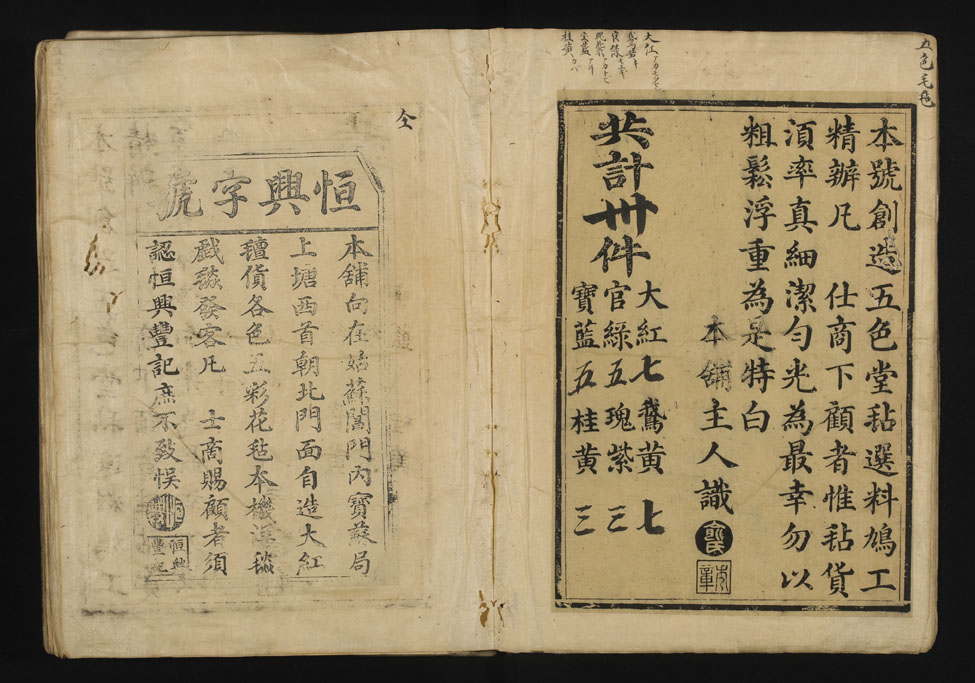 五色毛毡
本號創造五色堂毡選料鳩工
精辦凡　仕商下顧者惟毡貨
湏率真細潔勻光為最幸勿以
粗鬆浮重為是特白
本舖主人識
大紅七鵝黄　七
官綠五瑰紫　三
寶藍五桂黄　三
共計卅件
仝
恒興字號
本舖向在姑蘇閶門內寶蘇局
上塘西首朝北門面自造大紅
氊貨各色五彩花毡本機
戯毯發客凡　士商賜顧者須
認恒興豐記庶不致悞
恒興
豐記